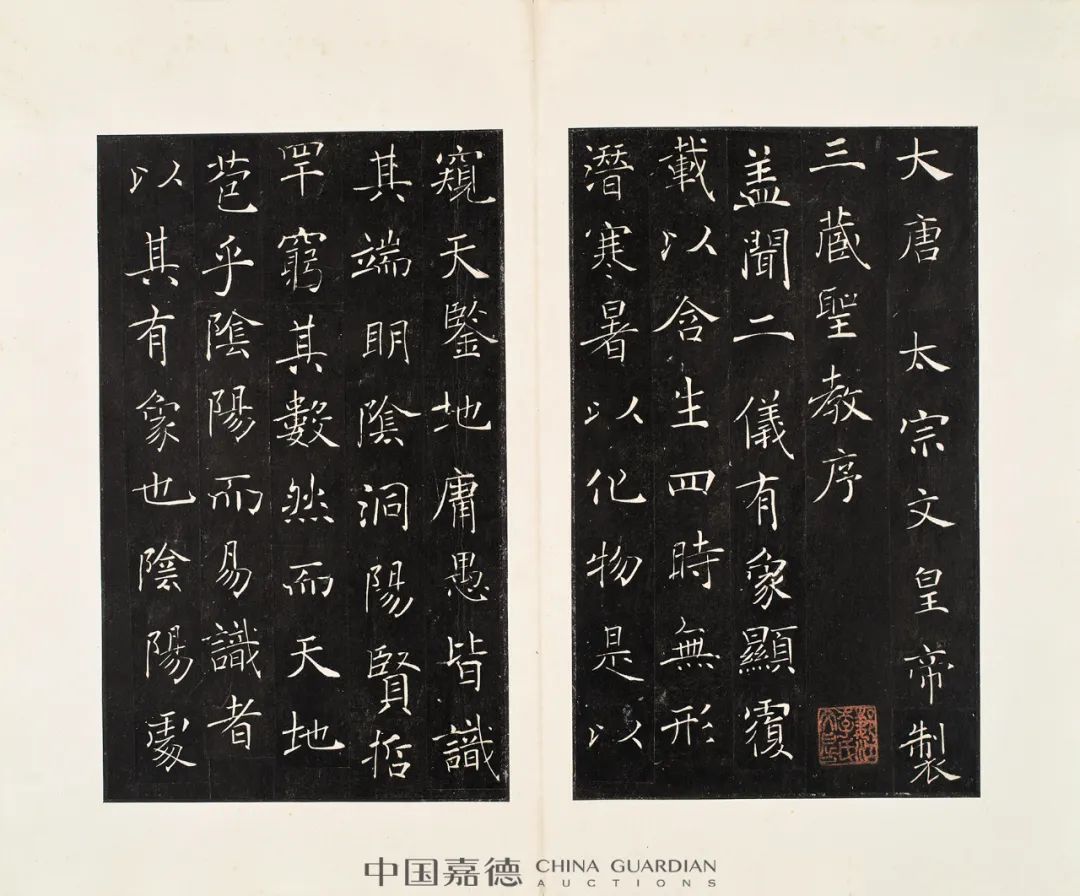 大唐太宗文皇帝製
三藏聖教序
盖聞二儀有象顯覆
載以含生四時無形
潛寒暑以化物是以
窺天鑒地庸愚皆識
其端明陰洞陽賢哲
罕窮其數然而天地
苞乎陰陽而易識者
以其有象也陰陽處
中国嘉德 CHINA GUARDIAN
AUCTIONS